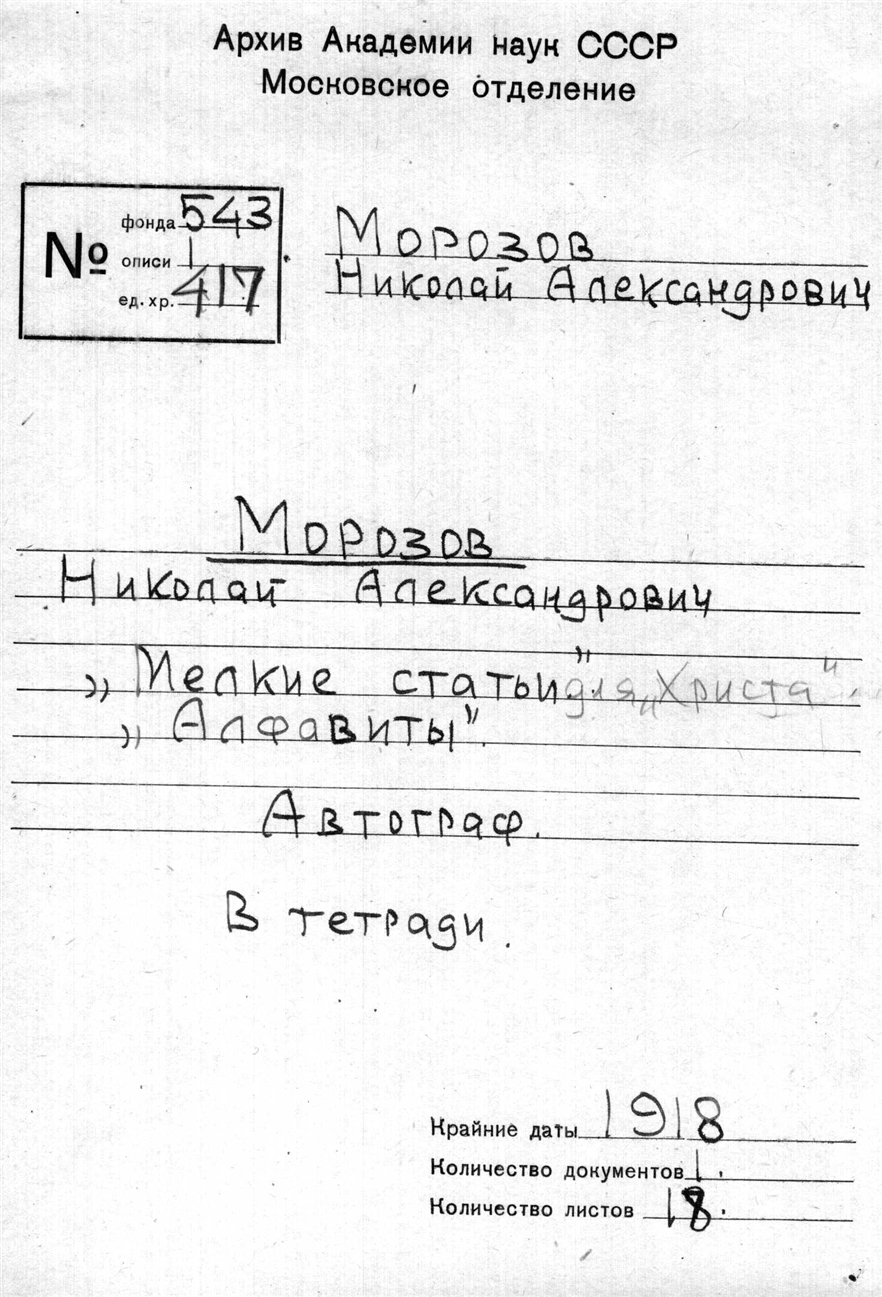 Архив Академии наук СССР
Московское отделение
№ фонда 543
описи 1
ед. хр. 417
Морозов
Николай Александрович
Морозов
Николай Александрович
„Мелкие статьи" для „Христа"
„Алфавиты".
Автограф.
В тетради.
Крайние даты 1918
Количество документов 1.
Количество листов 18.